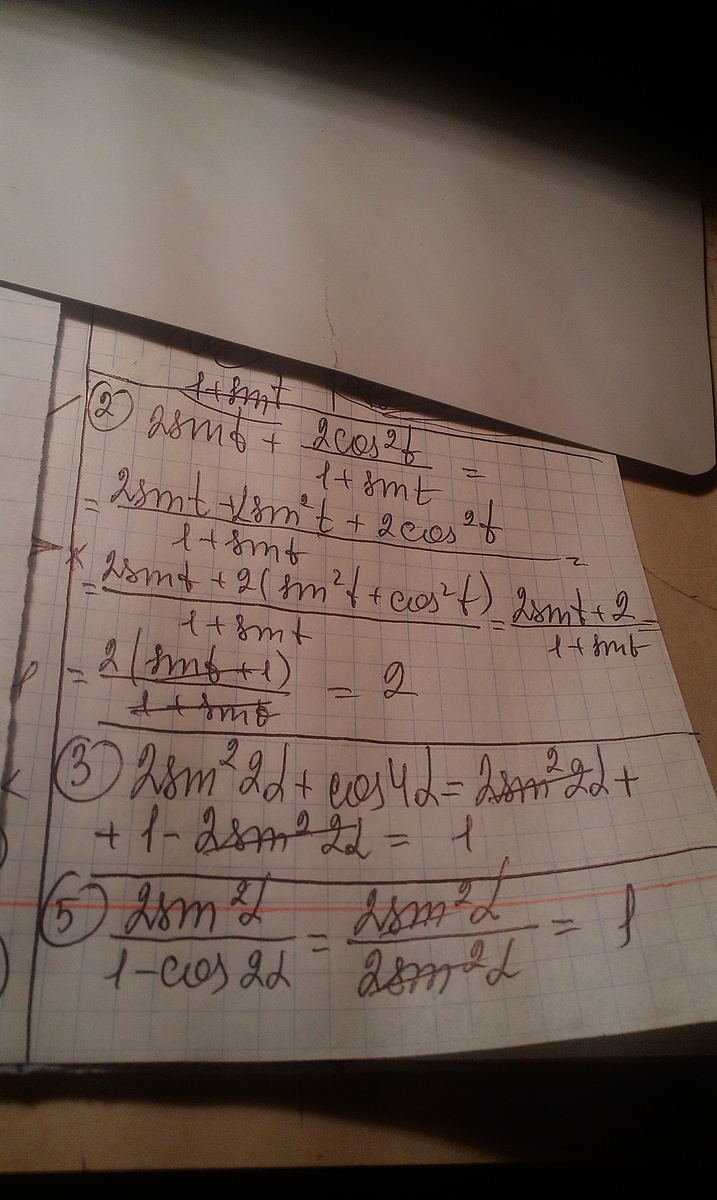 1+sint
② 2sint + 2cos²t / 1+sint =
= 2sint + 2sin²t + 2cos²t / 1+sint =
= 2sint + 2(sin²t + cos²t) / 1+sint = 2sint+2 / 1+sint =
= 2(sint+1) / 1+sint = 2
③ 2sin²2α + cos4α = 2sin²2α +
+ 1 - 2sin²2α = 1
⑤ 2sin²α / 1-cos2α = 2sin²α / 2sin²α = 1